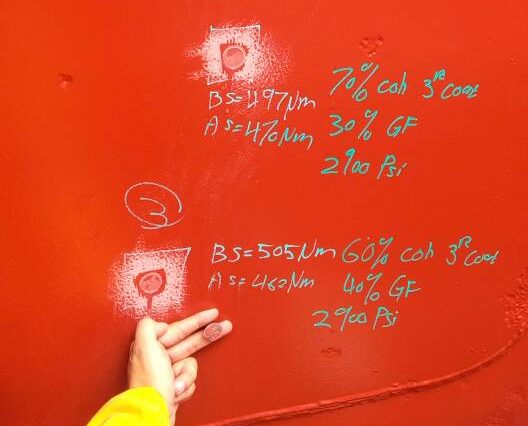 BS=497Nm 70% coh 3rd Coat
AS=470Nm 30% GF
2900 Psi
3
BS=505Nm 60% coh 3rd Coat
AS=462Nm 40% GF
2900 Psi